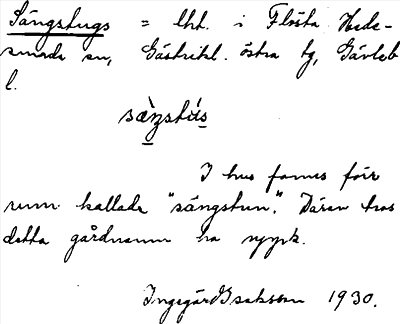 Sängstugs = lht. i Flästa Hede-
sunda sn, Gästrikl. östra tg, Gävleb
l.
sæ̀ŋstùs
I hus fanns förr
rum kallade "sängstun". Därav tros
detta gårdnamn ha uppk.
Ingegär Isaksson 1930.